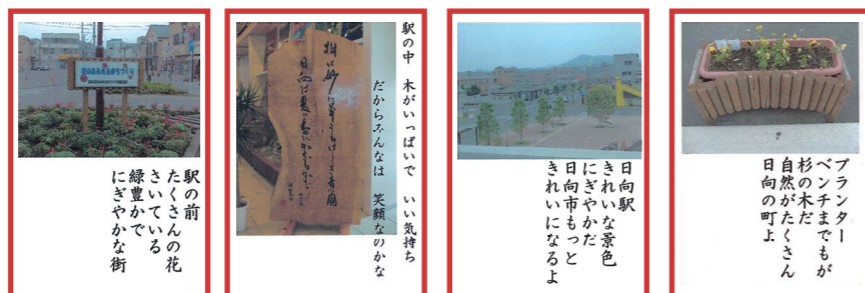 駅の前
たくさんの花
さいている
緑豊かで
にぎやかな街
駅の中　木がいっぱいで　いい気持ち
だからみんなは　笑顔なのかな
日向駅
きれいな景色
にぎやかだ
日向市もっと
きれいになるよ
プランター
ベンチまでもが
杉の木だ
自然がたくさん
日向の町よ